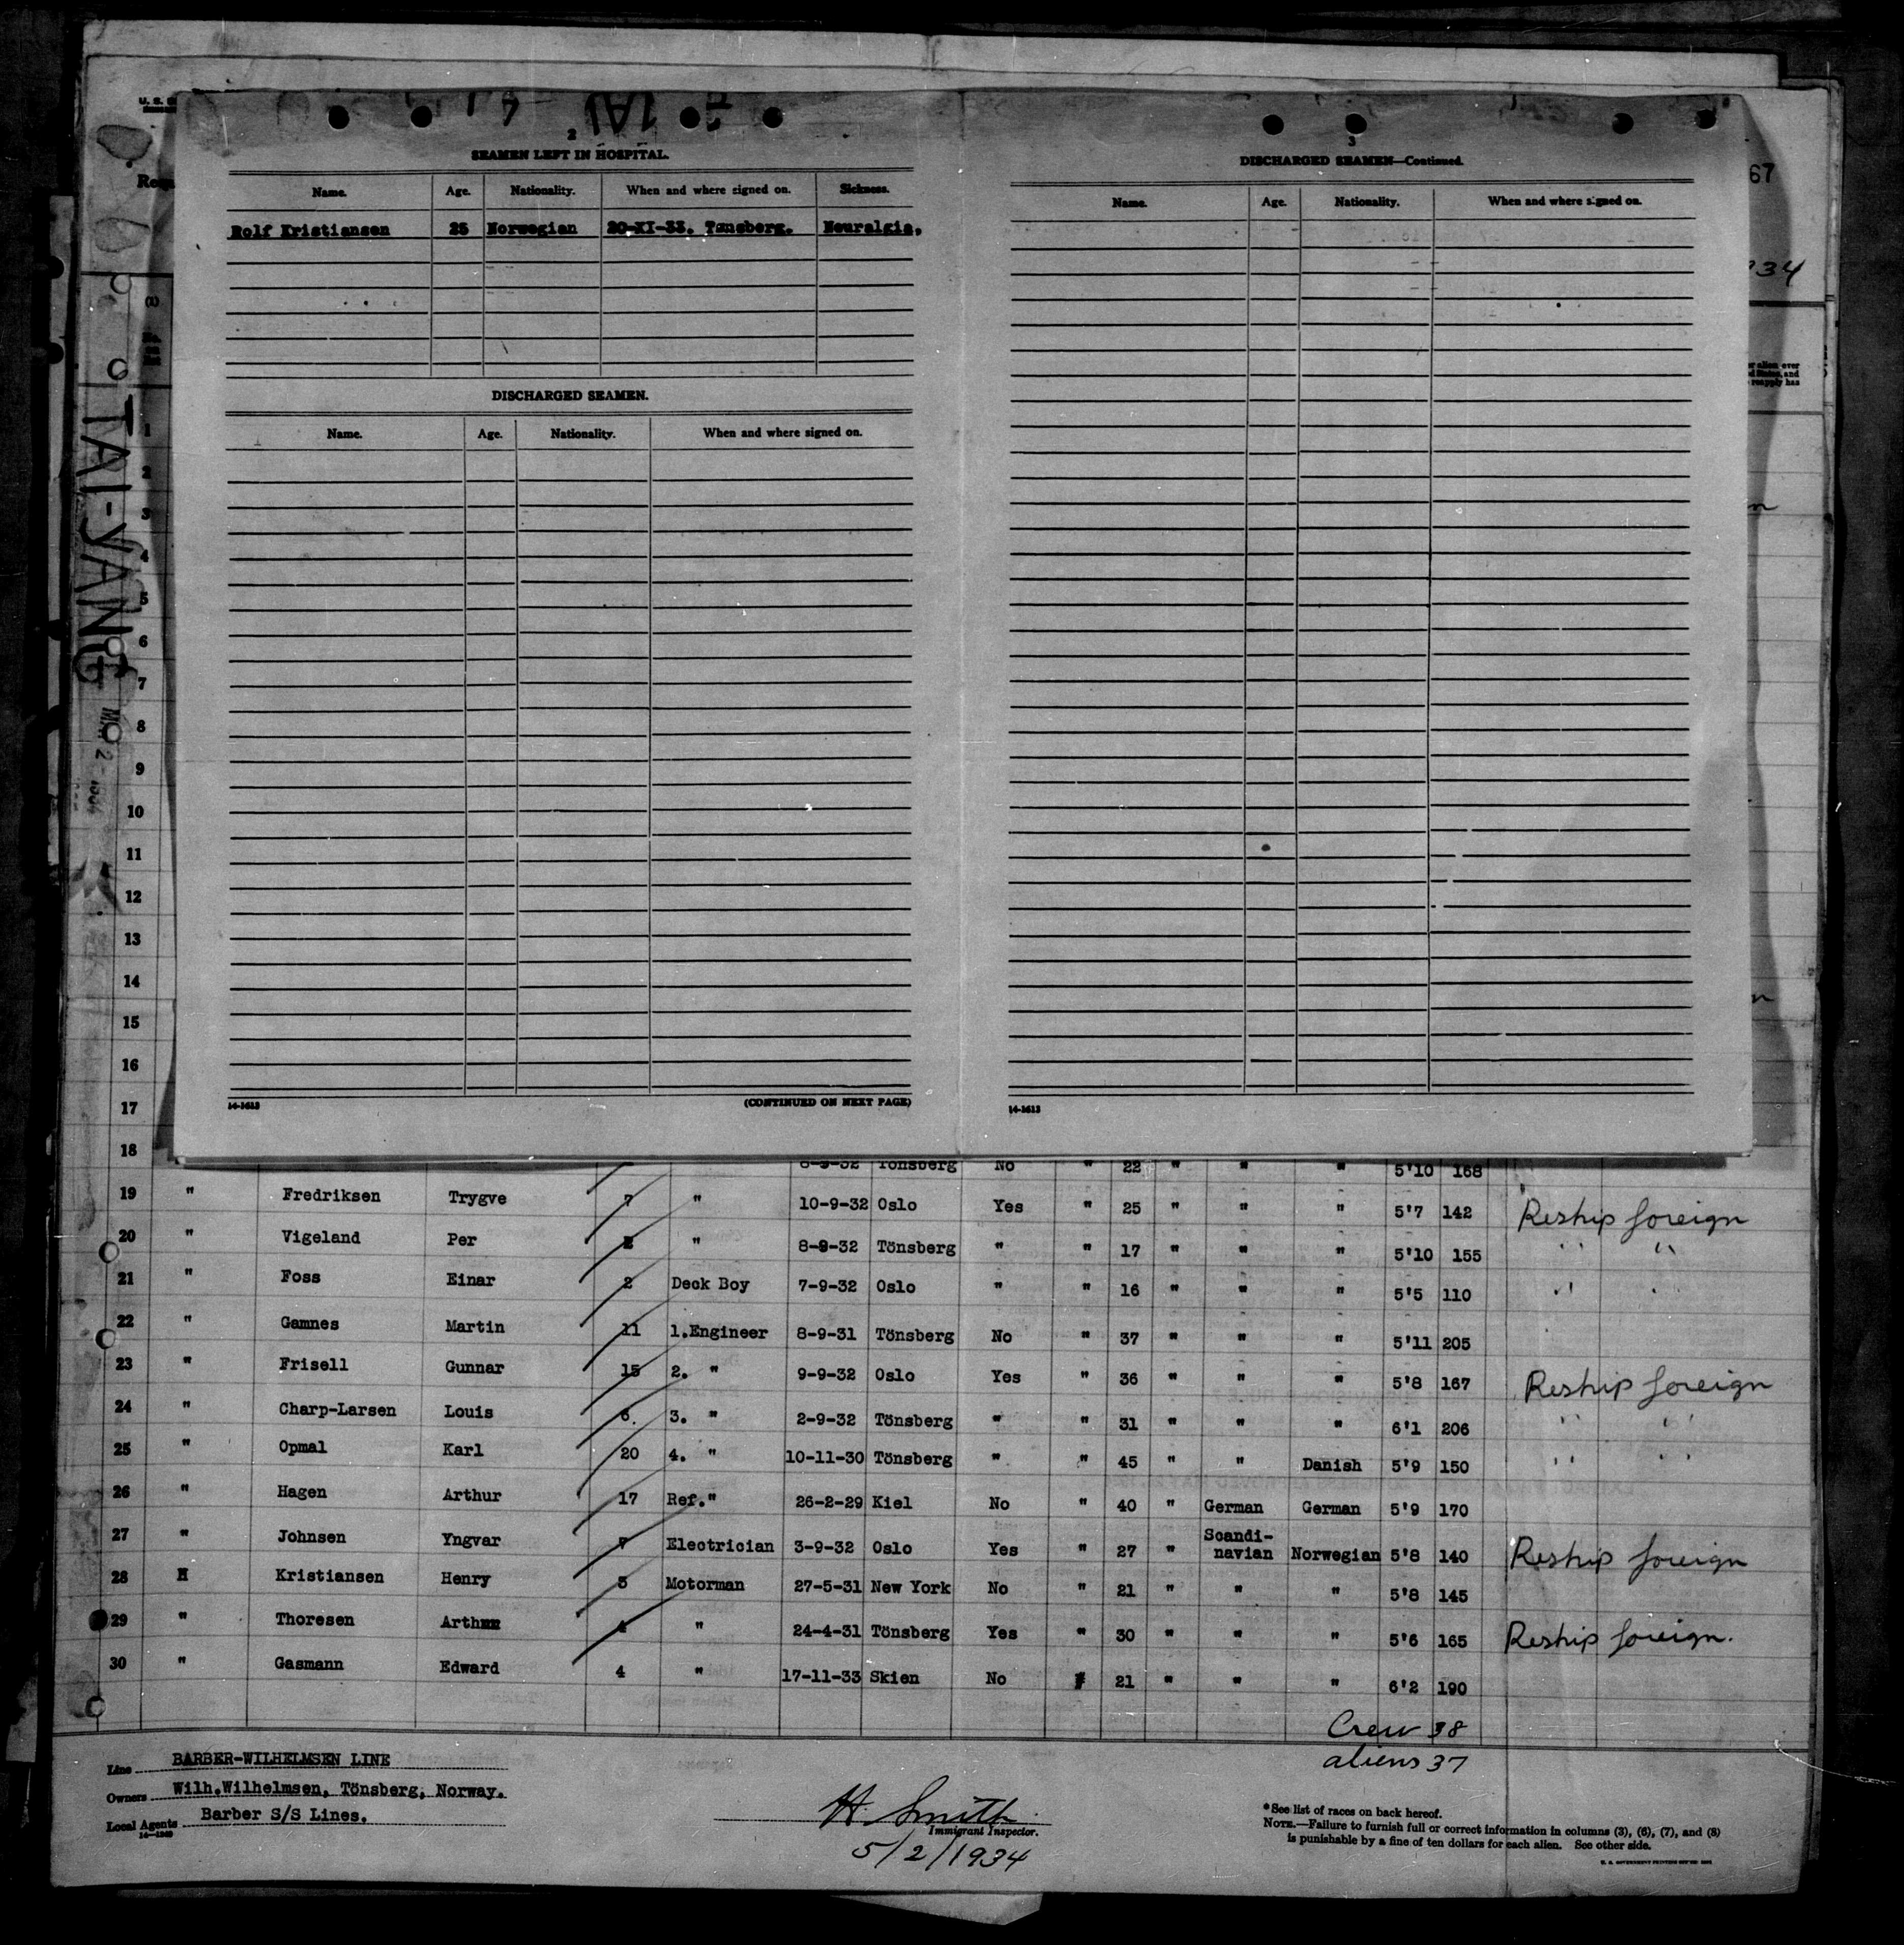 U. S.
2
SEAMEN LEFT IN HOSPITAL.
Name. Age. Nationality. When and where signed on. Sickness.
Rolf Kristiansen 25 Norwegian 20-XI-33. Tønsberg. Neuralgia.
DISCHARGED SEAMEN.
Name. Age. Nationality. When and where signed on.
14-1613
(CONTINUED ON NEXT PAGE)
3
DISCHARGED SEAMEN—Continued.
Name. Age. Nationality. When and where signed on.
14-1613
67
34
TAI-YANG
1
2
3
4
5
6
7
8
9
10
11
12
13
14
15
16
17
18 8-9-32 Tönsberg No " 22 " " " 5'10 168
19 " Fredriksen Trygve 7 " 10-9-32 Oslo Yes " 25 " " " 5'7 142 Reship foreign
20 " Vigeland Per 2 " 8-9-32 Tönsberg " " 17 " " " 5'10 155 " "
21 " Foss Einar 2 Deck Boy 7-9-32 Oslo " " 16 " " " 5'5 110 " "
22 " Gamnes Martin 11 1.Engineer 8-9-31 Tönsberg No " 37 " " " 5'11 205
23 " Frisell Gunnar 15 2. " 9-9-32 Oslo Yes " 36 " " " 5'8 167 Reship foreign
24 " Charp-Larsen Louis 6. 3. " 2-9-32 Tönsberg " " 31 " " " 6'1 206 " "
25 " Opmal Karl 20 4. " 10-11-30 Tönsberg " " 45 " " Danish 5'9 150 " "
26 " Hagen Arthur 17 Ref." 26-2-29 Kiel No " 40 " German German 5'9 170
27 " Johnsen Yngvar 7 Electrician 3-9-32 Oslo Yes " 27 " Scandi-
navian Norwegian 5'8 140 Reship foreign
28 " Kristiansen Henry 5 Motorman 27-5-31 New York No " 21 " " " 5'8 145
29 " Thoresen Arth 4 " 24-4-31 Tönsberg Yes " 30 " " " 5'6 165 Reship foreign.
30 " Gasmann Edward 4 " 17-11-33 Skien No " 21 " " " 6'2 190
Crew 38
aliens 37
Line BARBER-WILHELMSEN LINE
Owners Wilh.Wilhelmsen, Tönsberg, Norway.
Local Agents Barber S/S Lines.
H. Smith
Immigrant Inspector.
5/2/1934
*See list of races on back hereof.
NOTE.—Failure to furnish full or correct information in columns (3), (6), (7), and (8)
is punishable by a fine of ten dollars for each alien. See other side.